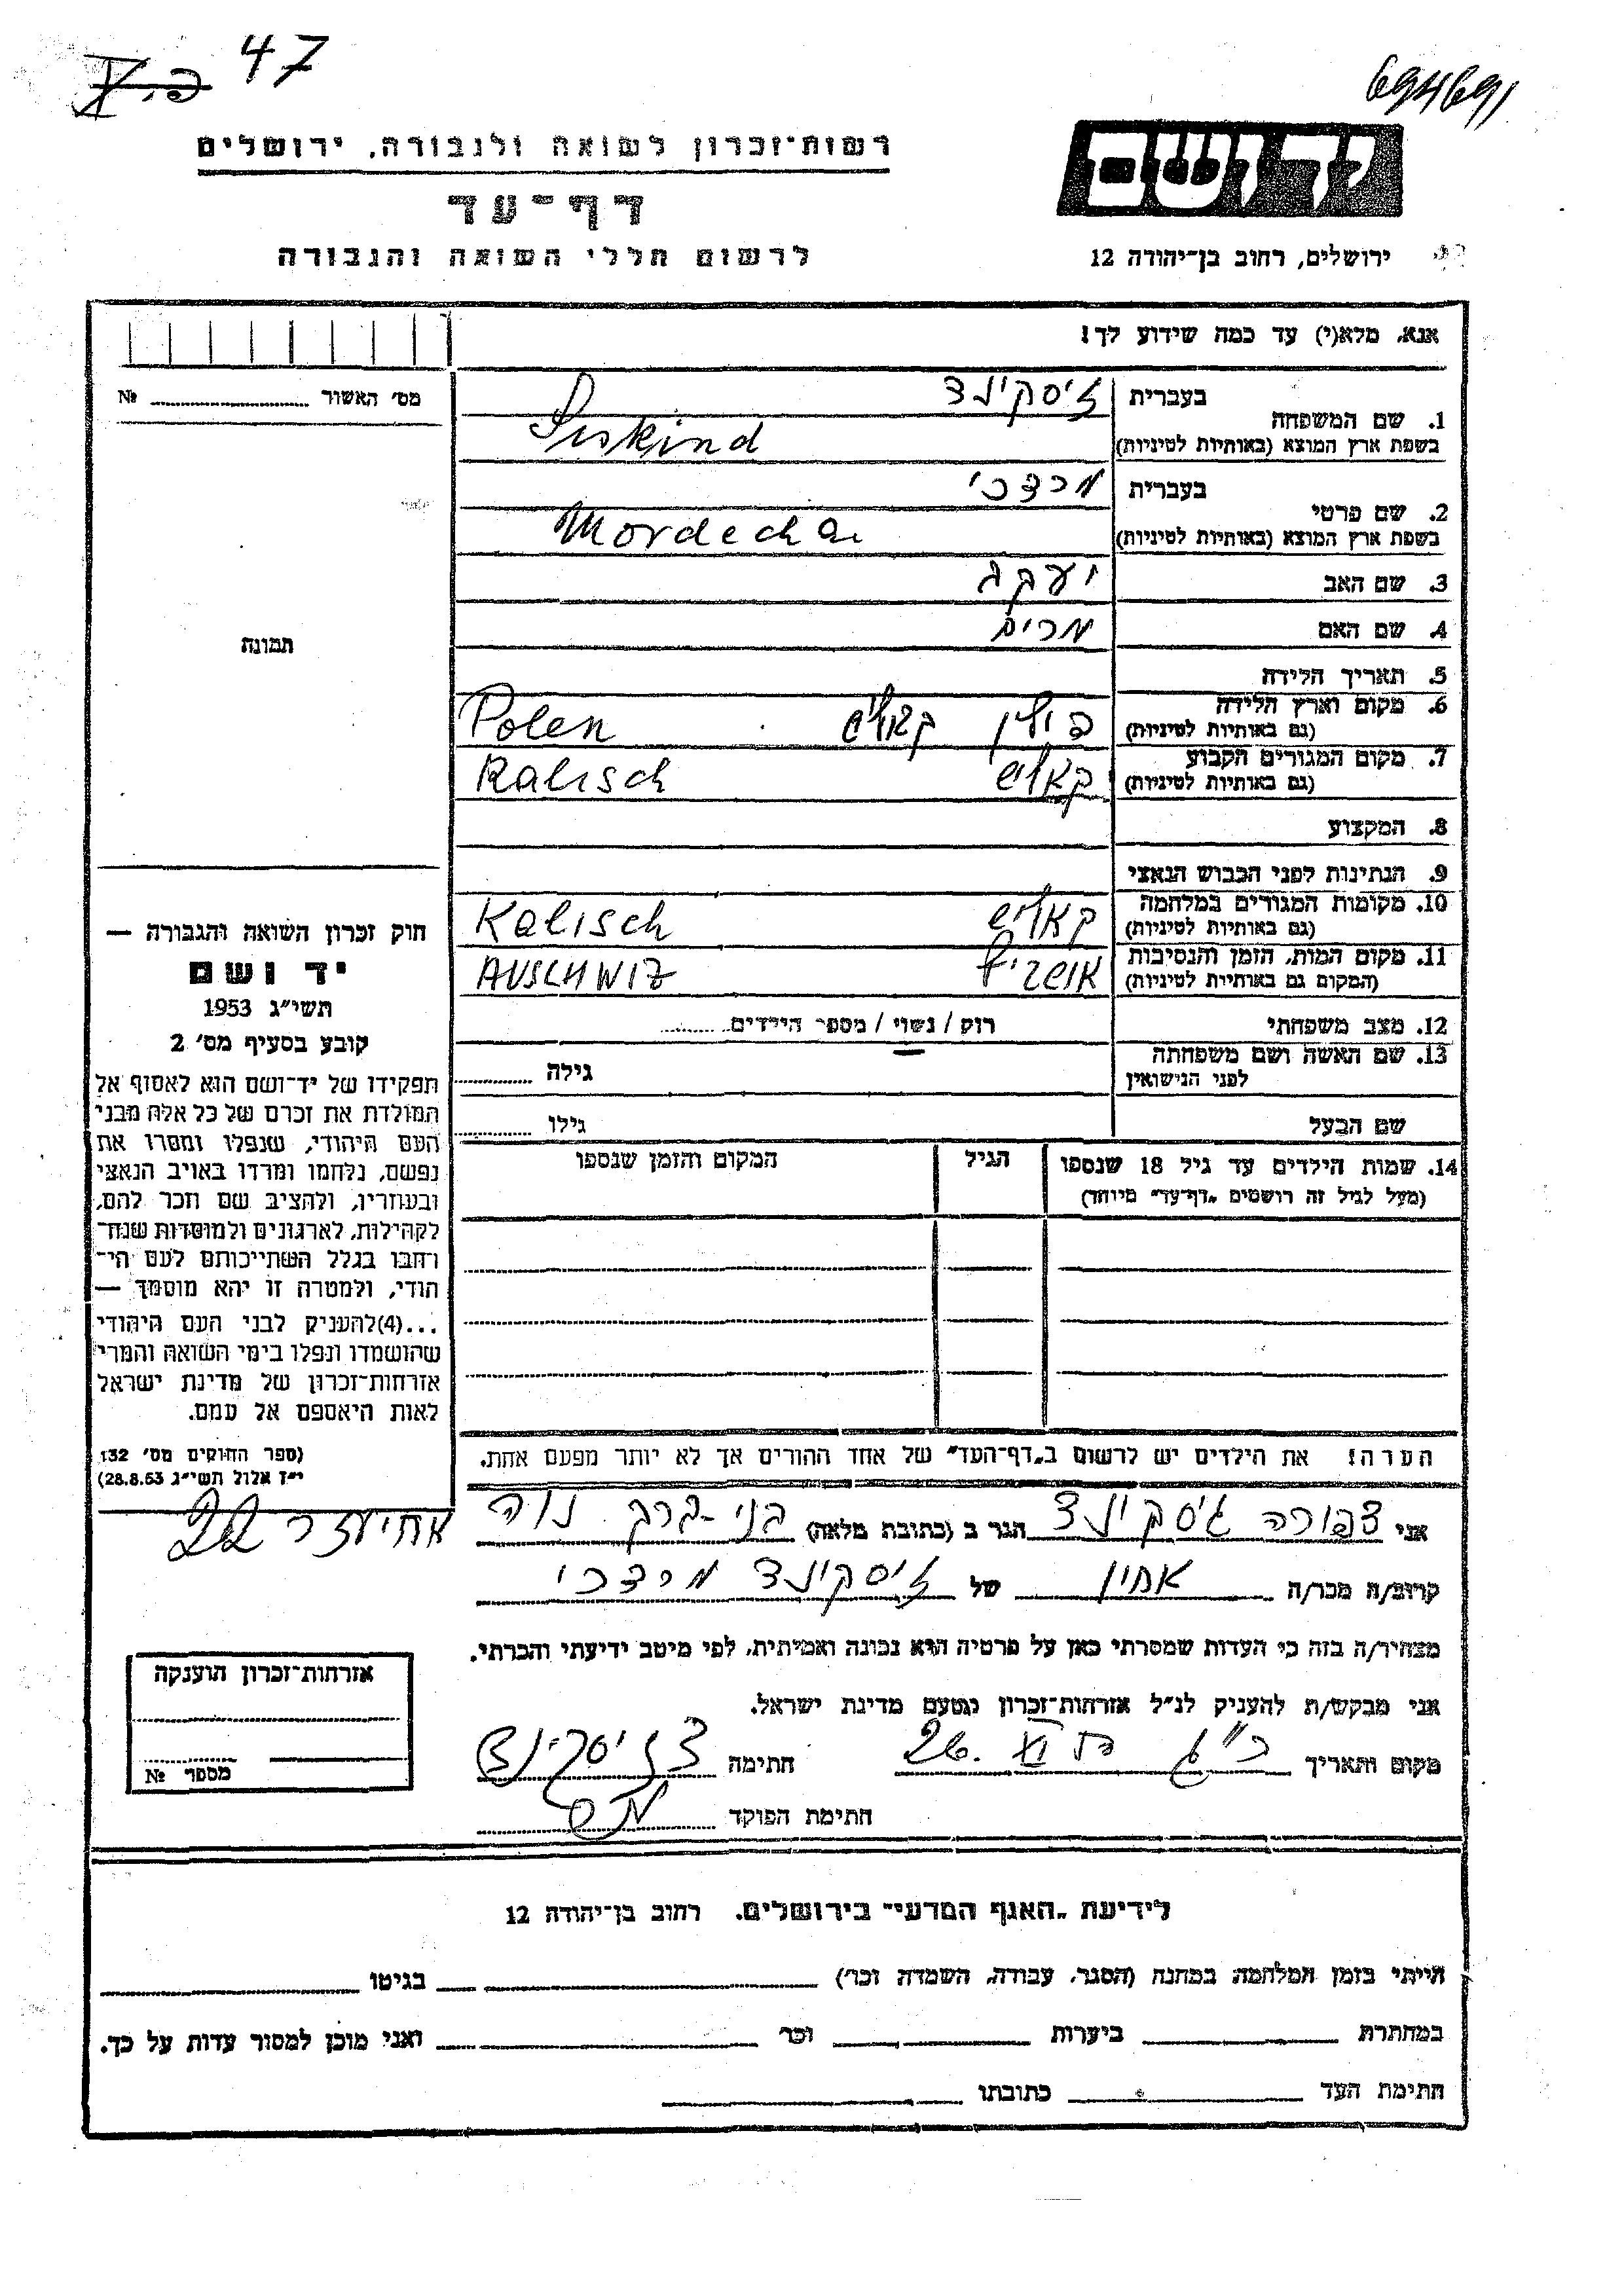 47
694691
רשות־זכרון לשואה ולגבורה, ירושלים
יד ושם
דף־עד
לרשום חללי השואה והגבורה
ירושלים, רחוב בן־יהודה 12
אנא, מלא(י) עד כמה שידוע לך!
מס' האשור № ..........
1. שם המשפחה
בעברית זיסקינד
בשפת ארץ המוצא (באותיות לטיניות) Siskind
2. שם פרטי
בעברית מרדכי
בשפת ארץ המוצא (באותיות לטיניות) Mordechai
3. שם האב יעקב
4. שם האם מרים
תמונה
5. תאריך הלידה
6. מקום וארץ הלידה
(גם באותיות לטיניות) פולין קאליש Polen
7. מקום המגורים הקבוע
(גם באותיות לטיניות) קאליש Kalisch
8. המקצוע
9. הנתינות לפני הכבוש הנאצי
10. מקומות המגורים במלחמה
(גם באותיות לטיניות) קאליש Kalisch
11. מקום המות, הזמן והנסיבות
(המקום גם באותיות לטיניות) אושביץ AUSCHWIZ
12. מצב משפחתי רוק / נשוי / מספר הילדים ........
13. שם האשה ושם משפחתה
לפני הנישואין גילה ..........
שם הבעל גילו ..........
14. שמות הילדים עד גיל 18 שנספו הגיל המקום והזמן שנספו
(מעל לגיל זה רושמים „דף־עד" מיוחד)
חוק זכרון השואה והגבורה —
יד ושם
תשי"ג 1953
קובע בסעיף מס' 2
תפקידו של יד־ושם הוא לאסוף אל
המולדת את זכרם של כל אלה מבני
העם היהודי, שנפלו ומסרו את
נפשם, נלחמו ומרדו באויב הנאצי
ובעוזריו, ולהציב שם וזכר להם,
לקהילות, לארגונים ולמוסדות שנח־
רבו בגלל השתייכותם לעם הי־
הודי, ולמטרה זו יהא מוסמך —
...(4)להעניק לבני העם היהודי
שהושמדו ונפלו בימי השואה והמרי
אזרחות־זכרון של מדינת ישראל
לאות היאספם אל עמם.
(ספר החוקים מס' 132
י"ז אלול תשי"ג 28.8.53)
הערה! את הילדים יש לרשום ב„דף־העד" של אחד ההורים אך לא יותר מפעם אחת.
אני צפורה זיסקינד הגר ב (כתובת מלאה) בני-ברק נוה
אחיעזר 22
קרוב/ה מכר/ה אחין של זיסקינד מרדכי
מצהיר/ה בזה כי העדות שמסרתי כאן על פרטיה היא נכונה ואמיתית, לפי מיטב ידיעתי והכרתי.
אני מבקש/ת להעניק לנ"ל אזרחות־זכרון מטעם מדינת ישראל.
מקום ותאריך חתימה צ. זיסקינד
חתימת הפוקד
אזרחות־זכרון הוענקה
מספר №
לידיעת „האגף המדעי" בירושלים. רחוב בן־יהודה 12
הייתי בזמן המלחמה במחנה (הסגר, עבודה, השמדה וכר') בגיטו
במחתרת ביערות וכר ואני מוכן למסור עדות על כך.
חתימת העד כתובתו